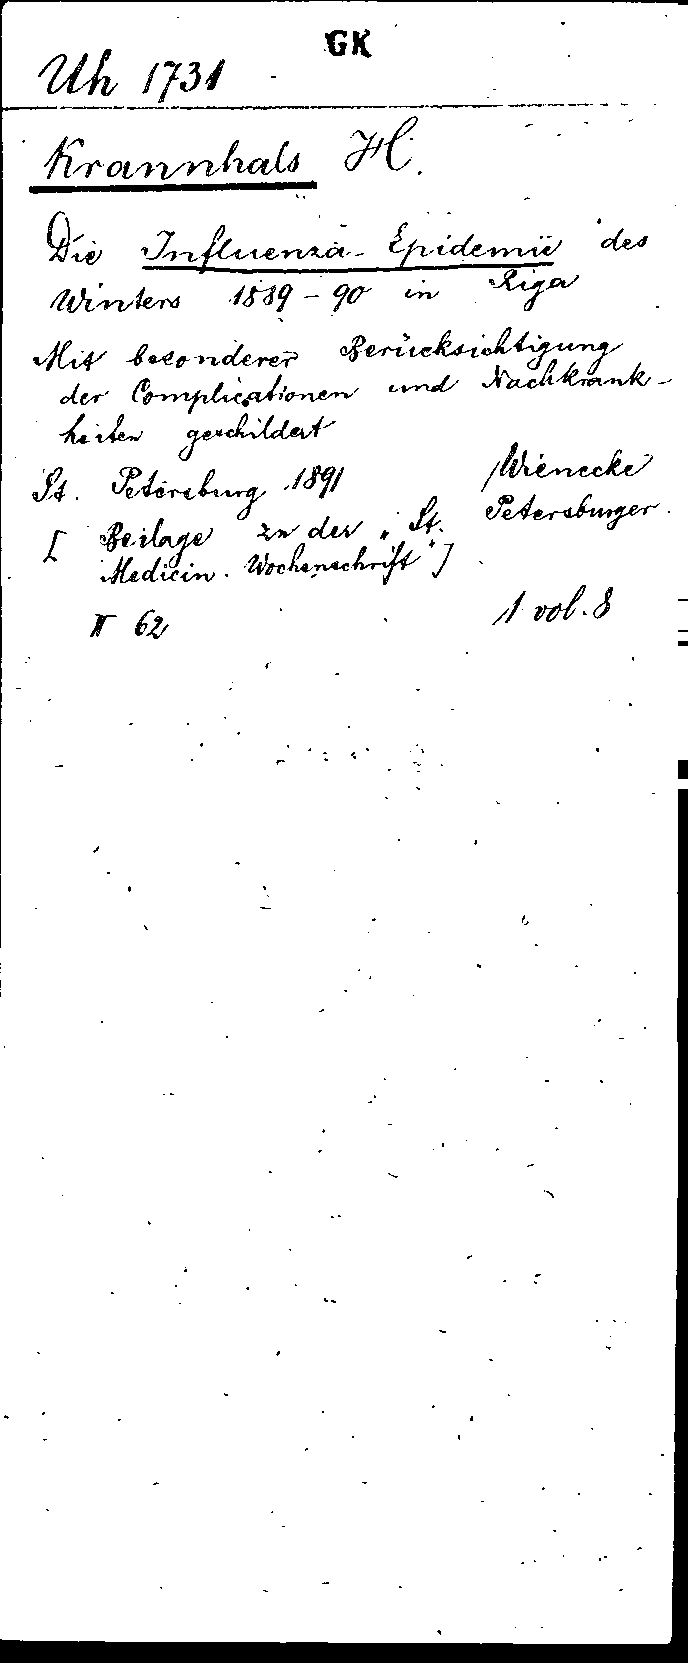 GK
Uh 1731
Krannhals H.
Die Influenza-Epidemie des
Winters 1889-90 in Riga
Mit besonderer Berücksichtigung
der Complicationen und Nachkrank-
heiten geschildert
St. Petersburg 1891 Wienecke
[ Beilage zu der „St. Petersburger
Medicin. Wochenschrift"]
II 62 1 vol. 8